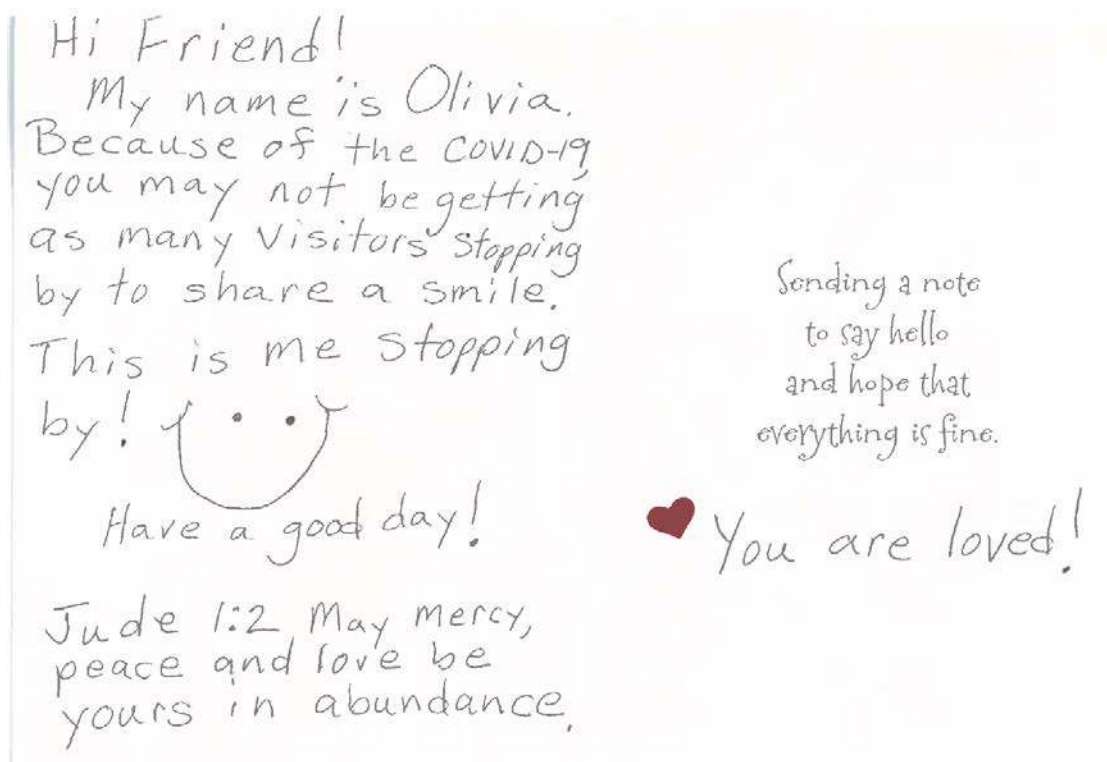 Hi Friend!
My name is Olivia.
Because of the COVID-19
you may not be getting
as many visitors stopping
by to share a smile.
This is me stopping
by!
Have a good day!
Jude 1:2 May mercy,
peace and love be
yours in abundance.
Sending a note
to say hello
and hope that
everything is fine.
You are loved!